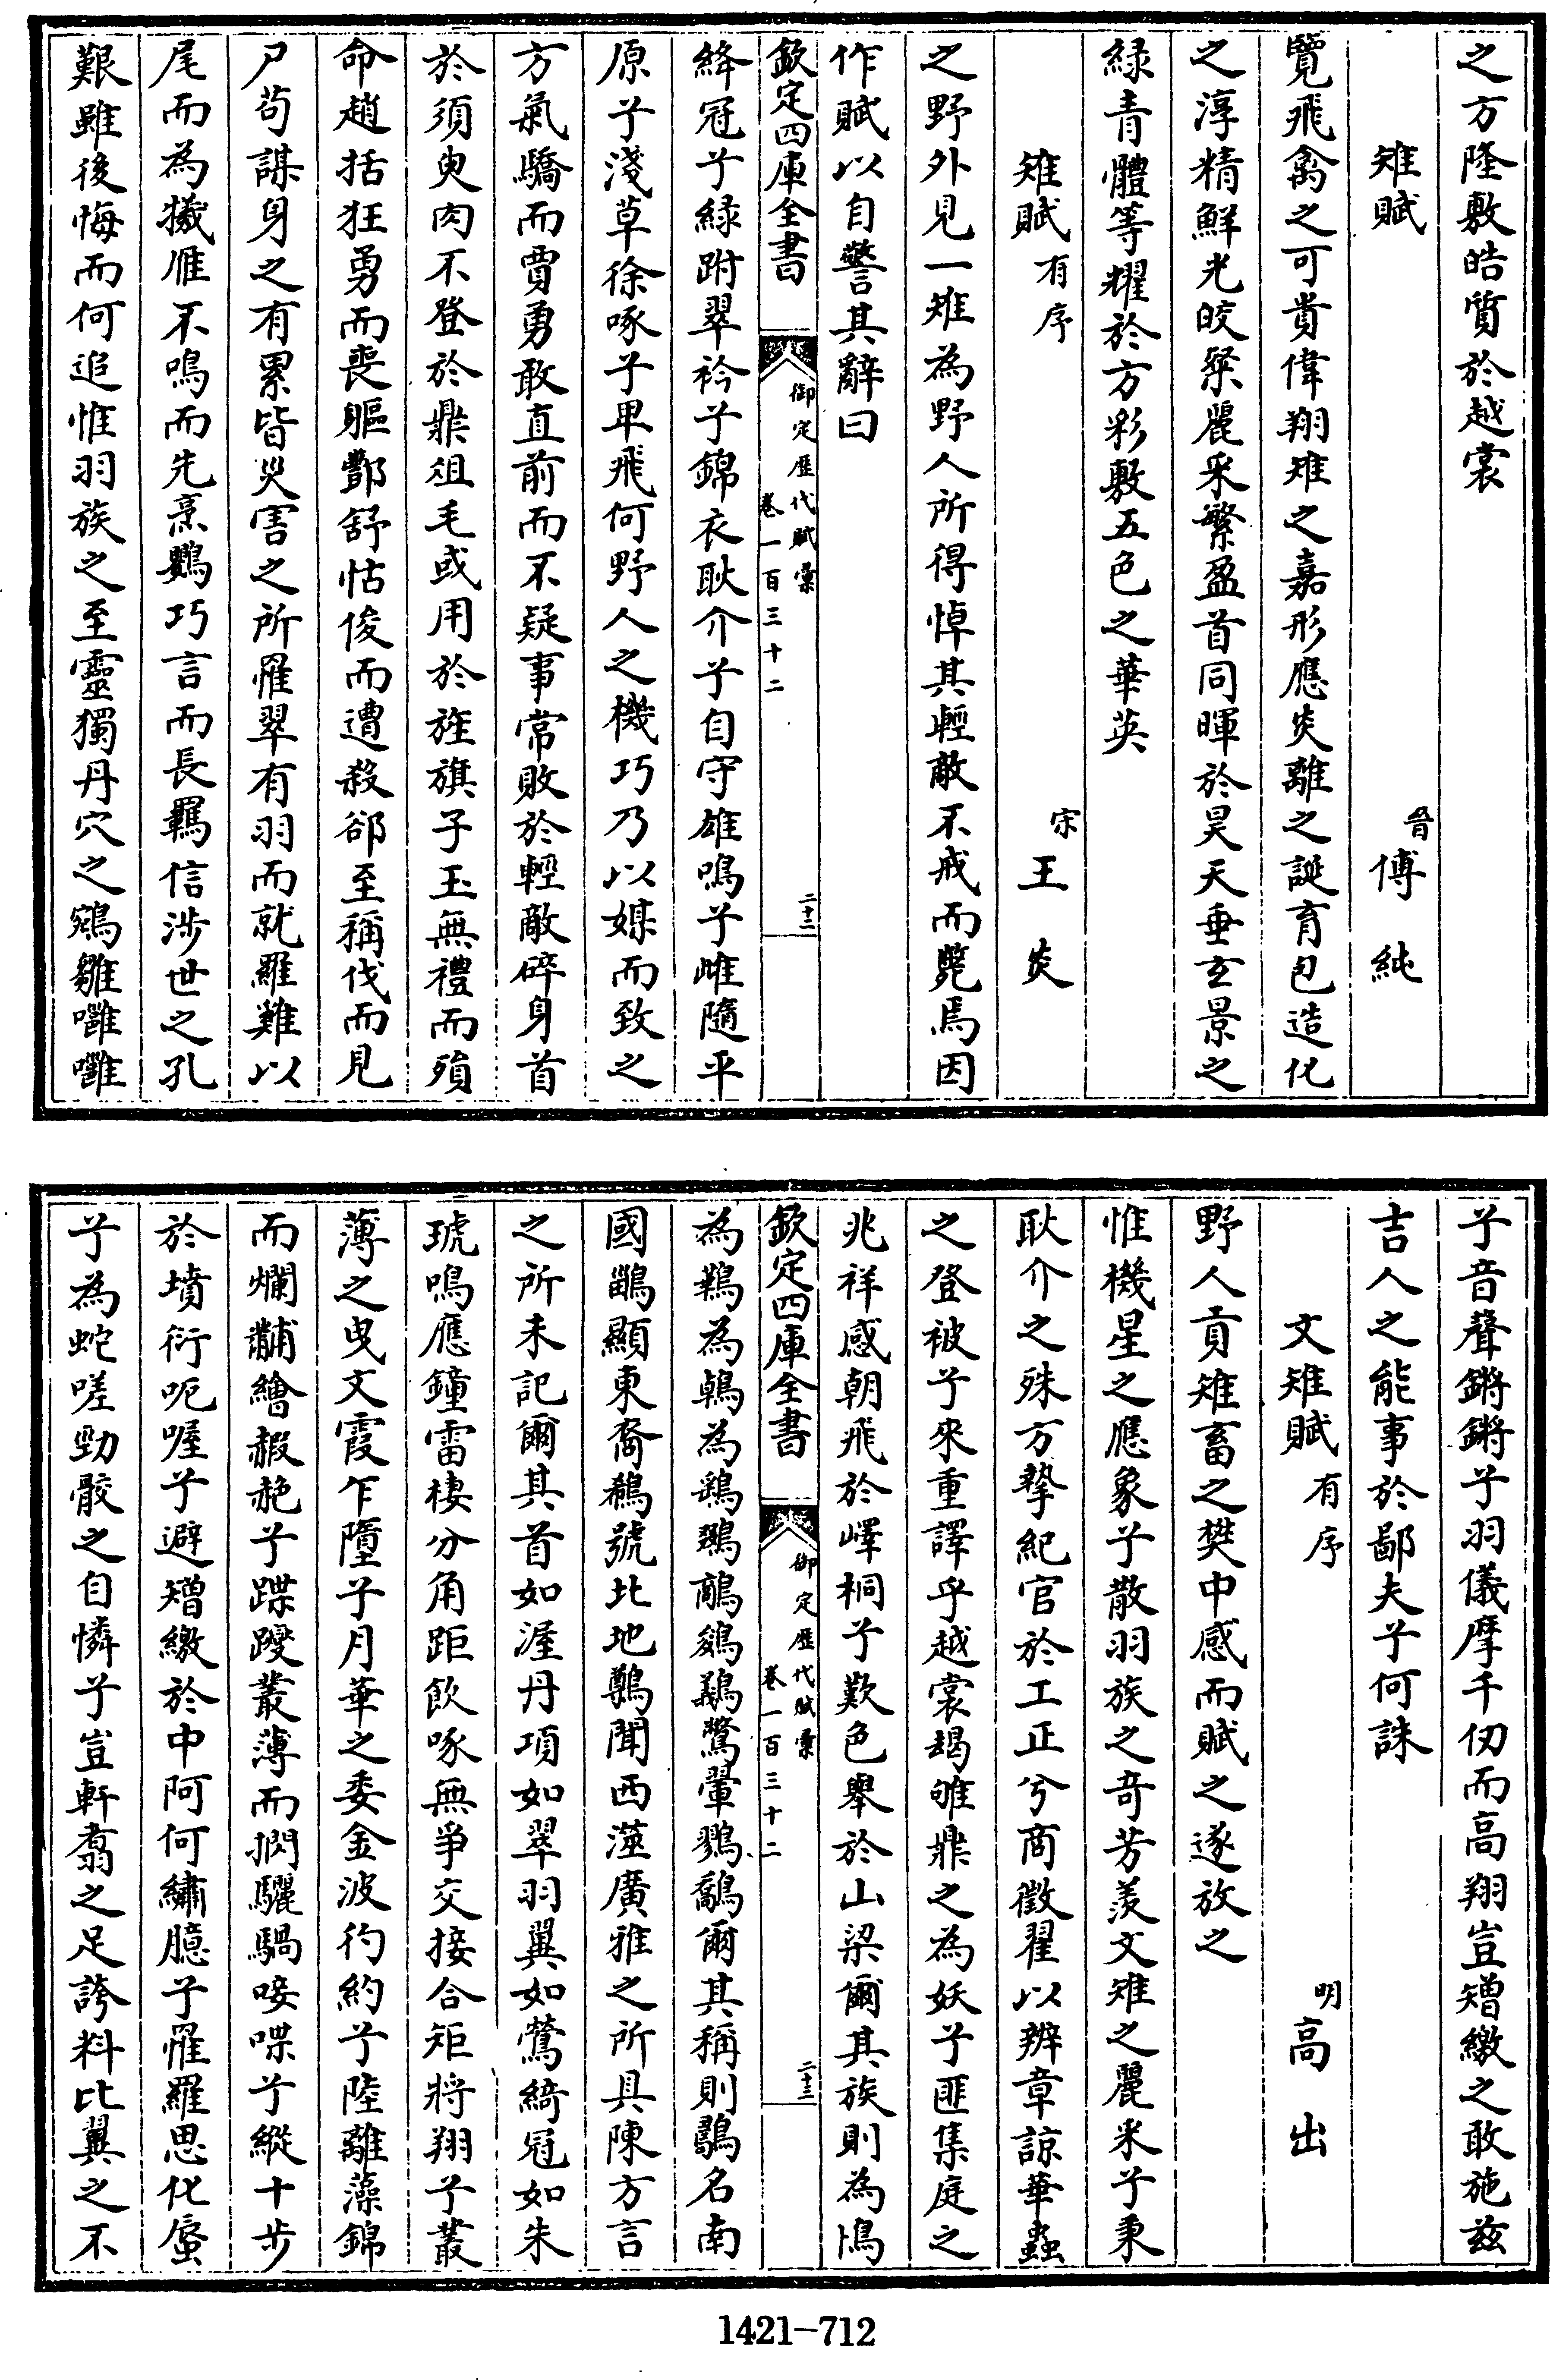 之方隆敷皓質於越裳
雉賦
晉
傅純
覽飛禽之可貴偉翔雉之嘉形應炎離之誕育包造化
之淳精鮮光皎粲麗采繁盈首同暉於昊天垂玄景之
緑青體等耀於方彩敷五色之華英
雉賦有序
宋
王炎
之野外見一雉為野人所得悼其輕敵不戒而斃焉因
作賦以自警其辭曰
欽定四庫全書
御定歴代賦彙
卷一百三十二
二十二
絳冠兮緑跗翠衿兮錦衣耿介兮自守雄鳴兮雌隨平
原兮淺草徐啄兮卑飛何野人之機巧乃以媒而致之
方氣驕而賈勇敢直前而不疑事常敗於輕敵碎身首
於須臾肉不登於鼎俎毛或用於旌旗子玉無禮而殞
命趙括狂勇而喪軀酆舒怙俊而遭殺郤至稱伐而見
尸苟謀身之有累皆災害之所罹翠有羽而就羅雞以
尾而為犧雁不鳴而先烹鸚巧言而長羈信涉世之孔
艱雖後悔而何追惟羽族之至靈獨丹穴之鵷雛噰噰
兮音聲鏘鏘兮羽儀摩千仞而高翔豈矰繳之敢施兹
吉人之能事於鄙夫兮何誅
文雉賦有序
明
高出
野人貢雉畜之樊中感而賦之遂放之
惟機星之應象兮散羽族之奇芳羡文雉之麗采兮秉
耿介之殊方摯紀官於工正兮商徵翟以辨章諒華蟲
之登被兮來重譯乎越裳曷雊鼎之為妖兮匪集庭之
兆祥感朝飛於嶧桐兮歎色舉於山梁爾其族則為鳪
欽定四庫全書
御定歴代賦彙
卷一百三十二
二十三
為鷷為鶾為鷂鷩翬爾其稱則名南
國鶅顯東裔鵗號北地鷷聞西滋廣雅之所具陳方言
之所未記爾其首如渥丹項如翠羽翼如鶯綺冠如朱
琥鳴應鐘雷棲分角距飲啄無爭交接合矩將翔兮叢
薄之曳文霞乍墮兮月華之委金波彴約兮陸離藻錦
而爛黼繪赮赩兮蹀躞叢薄而㩃驪騧唼喋兮縱十步
於墳衍呃喔兮避矰繳於中阿何繡臆兮罹羅思化蜃
兮為蛇嗟勁骹之自憐兮豈軒翥之足誇料比翼之不
1421-712